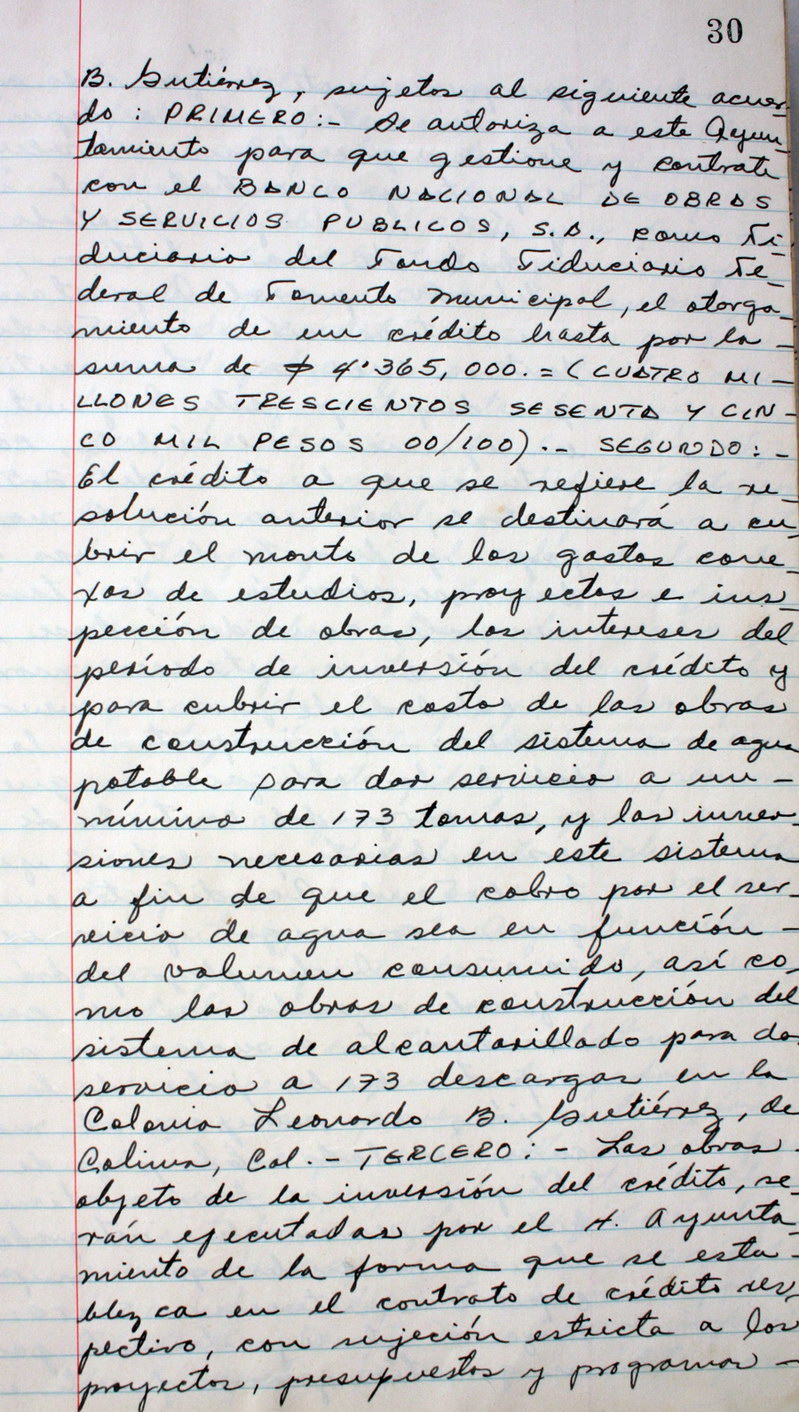 30
B. Gutiérrez, sujetos al siguiente acuer-
do: PRIMERO:- Se autoriza a este Ayun-
tamiento para que gestione y contrate
con el BANCO NACIONAL DE OBRAS
Y SERVICIOS PUBLICOS, S.A., como Fi-
duciario del Fondo Fiduciario Fe-
deral de Fomento Municipal, el otorga-
miento de un crédito hasta por la -
suma de $ 4'365,000.= (CUATRO MI-
LLONES TRESCIENTOS SESENTA Y CIN-
CO MIL PESOS 00/100).- SEGUNDO:-
El crédito a que se refiere la re-
solución anterior se destinará a cu-
brir el monto de los gastos cone-
xos de estudios, proyectos e ins-
pección de obras, los intereses del
período de inversión del crédito y
para cubrir el costo de las obras
de construcción del sistema de agua
potable para dar servicio a un -
mínimo de 173 tomas, y las inver-
siones necesarias en este sistema
a fin de que el cobro por el ser-
vicio de agua sea en función -
del volumen consumido, así co-
mo las obras de construcción del
sistema de alcantarillado para da
servicio a 173 descargas en la
Colonia Leonardo B. Gutiérrez, de
Colima, Col.- TERCERO:- Las obras
objeto de la inversión del crédito, se-
rán ejecutadas por el H. Ayunta-
miento de la forma que se esta-
blezca en el contrato de crédito res-
pectivo, con sujeción estricta a los
proyectos, presupuestos y programas -